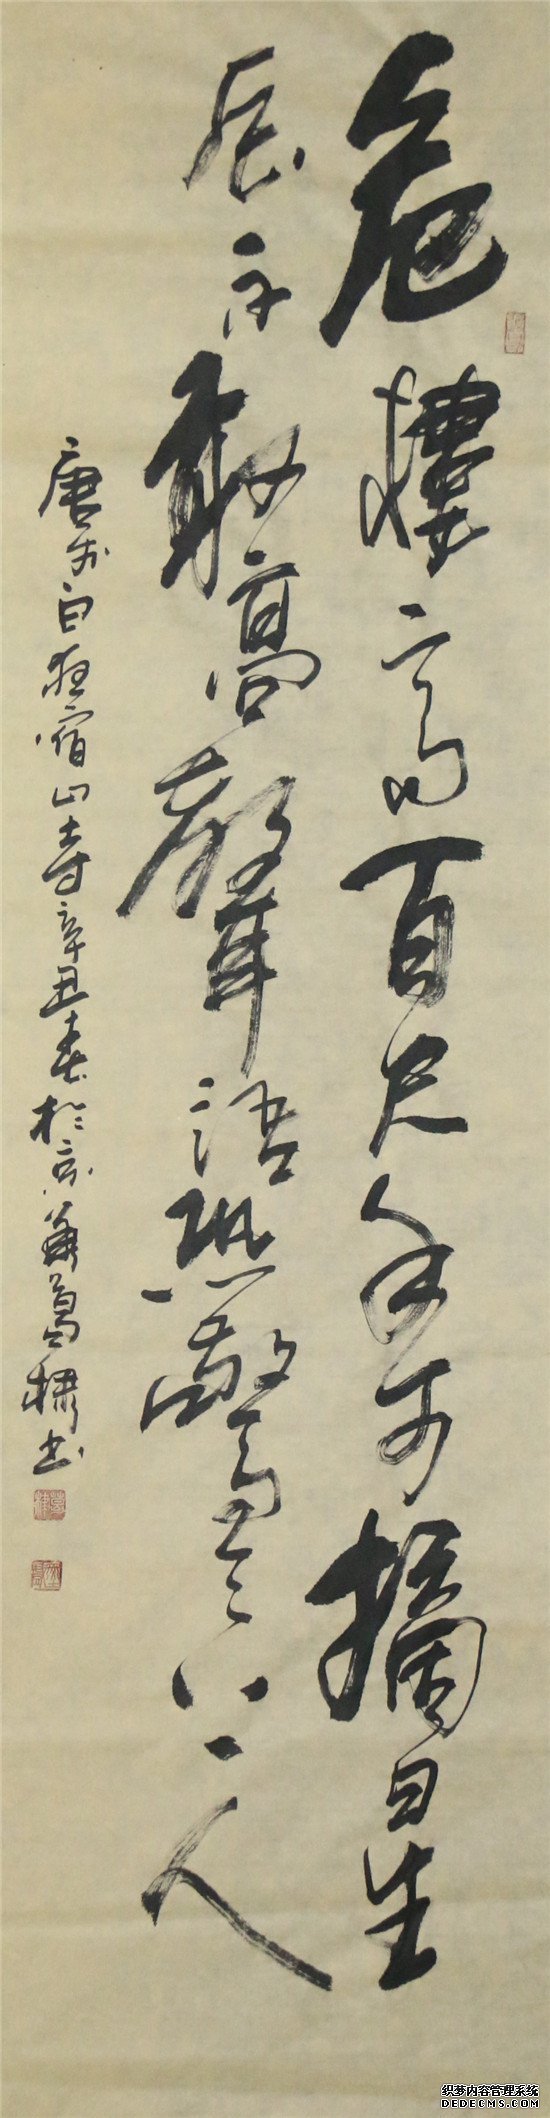 危樓高百尺手可摘星
辰不敢高聲語恐驚天上人
唐李白夜宿山寺辛丑春於京華葛書
织梦内容管理系统
DEDECMS.COM